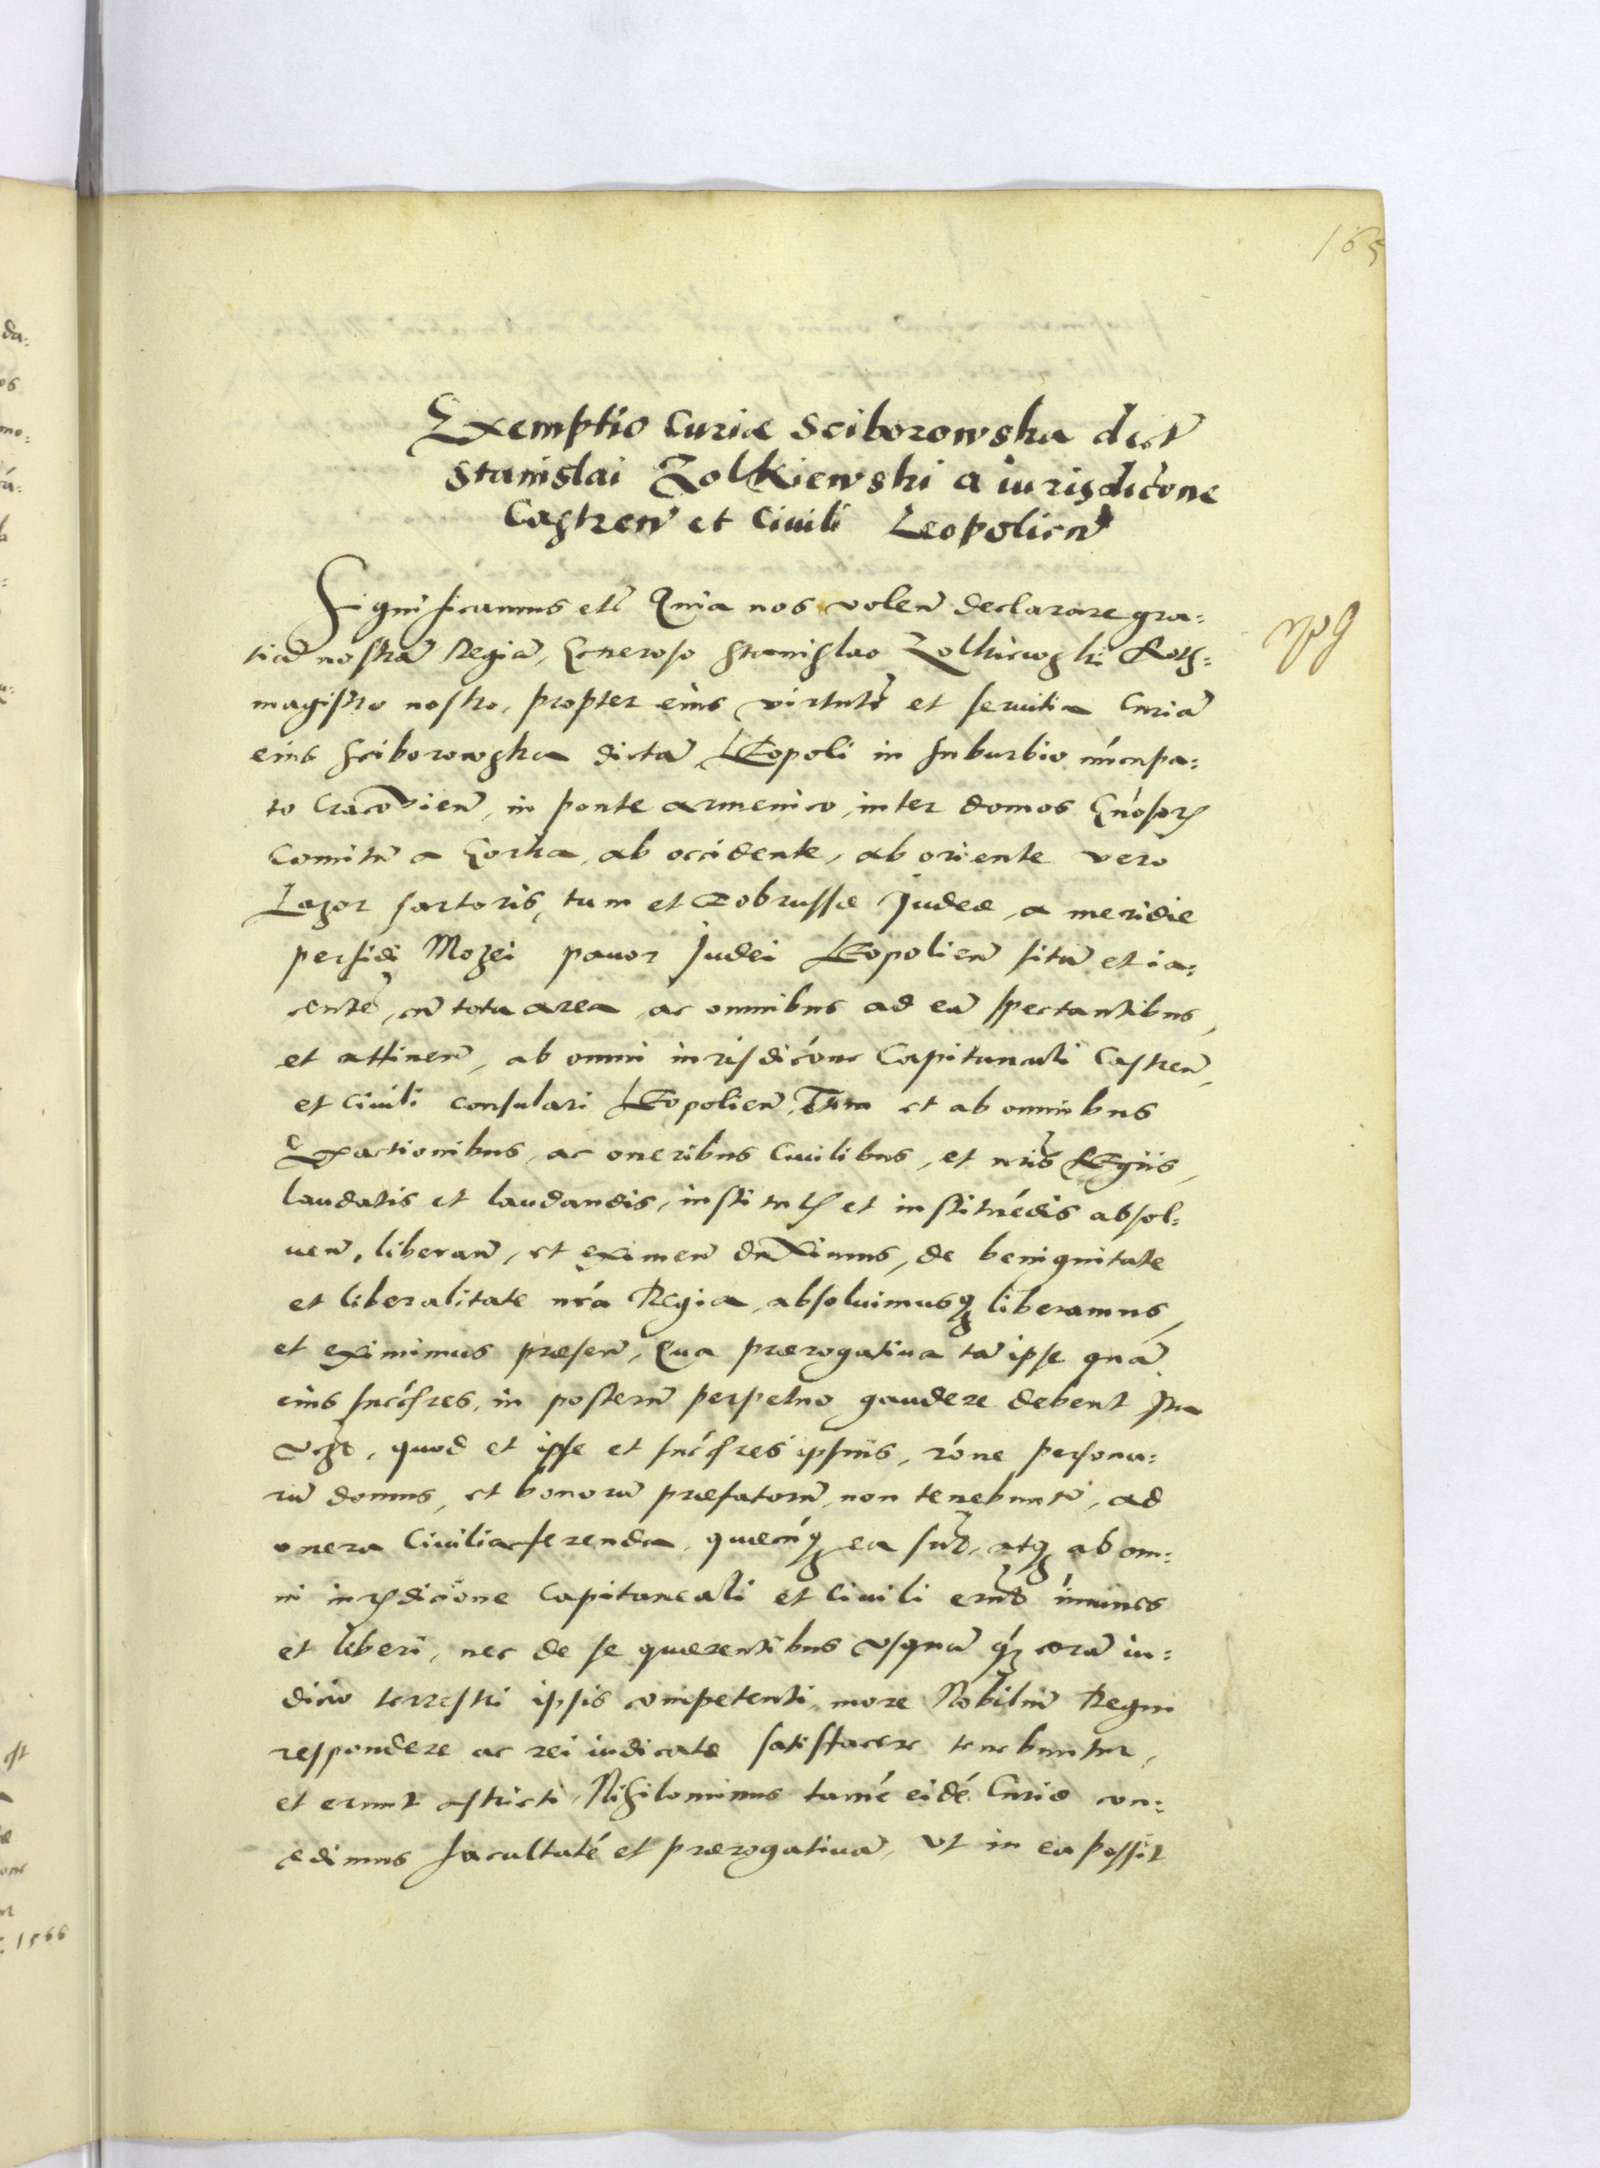 165
Exemptio Curiæ Sciborowska dict̃
Stanislai Zolkiewski a iurisdic̃one
Castreñ et Ciuili Leopolieñ
Significamus etc̃ Quia nos voleñ declarare gra:
tiã nostrã Regiã, Generoso Stanislao Zolkiewski Roth:
magistro nostro, propter eius virtutẽ et seruitia Curiã
eius Sciborowska dictã Leopoli in suburbio nũcupa:
to Cracovieñ, in ponte armenico, inter domos Gn̄osorꝫ
Comitũ a Gorka, ab occidente, ab oriente vero
Lazor sartoris, tum et Dobrussæ Judeæ, a meridie
perfidi Mozei pauor Judei Leopolieñ sitã et ia:
centẽ, cũ tota area, ac omnibus ad eã spectantibus,
et attineñ, ab omni iurisdic̃one Capitaneali Castreñ,
et Ciuili consulari Leopolieñ, Tum et ab omnibus
Exactionibus, ac oneribus Ciuilibus, et nris̃ Regiis,
laudatis et laudandis, institutꝫ et instituẽdis absol:
ueñ, liberañ, et eximeñ duximus, de benignitate
et liberalitate nr̃a Regia, absoluimusqꝫ liberamus,
et eximimus præseñ, Qua prærogatiua tã ipse quã
eius succ̃res, in posterũ perpetuo gaudere debent Ita
vꝫ, quod et ipse et succ̃res ipsius, r̃one persona:
rũ domus, et bonorũ præfatorũ, non tenebunt̃, ad
onera Ciuilia ferenda, quæcũqꝫ ea sũt, atqꝫ ab om:
ni iurꝫdic̃ione Capitaneali et Ciuili erũt ĩmunes
et liberi, nec de se quærentibus vsquã qꝫ corã iu:
dicio terrestri ipsis competenti, more Nobiliũ Regni
respondere ac rei iudicatæ satisfacere tenebuntur,
et erunt astricti, Nihilominus tamẽ eidẽ Curiæ con:
cedimus facultatẽ et prærogatiuã, vt in ea possit